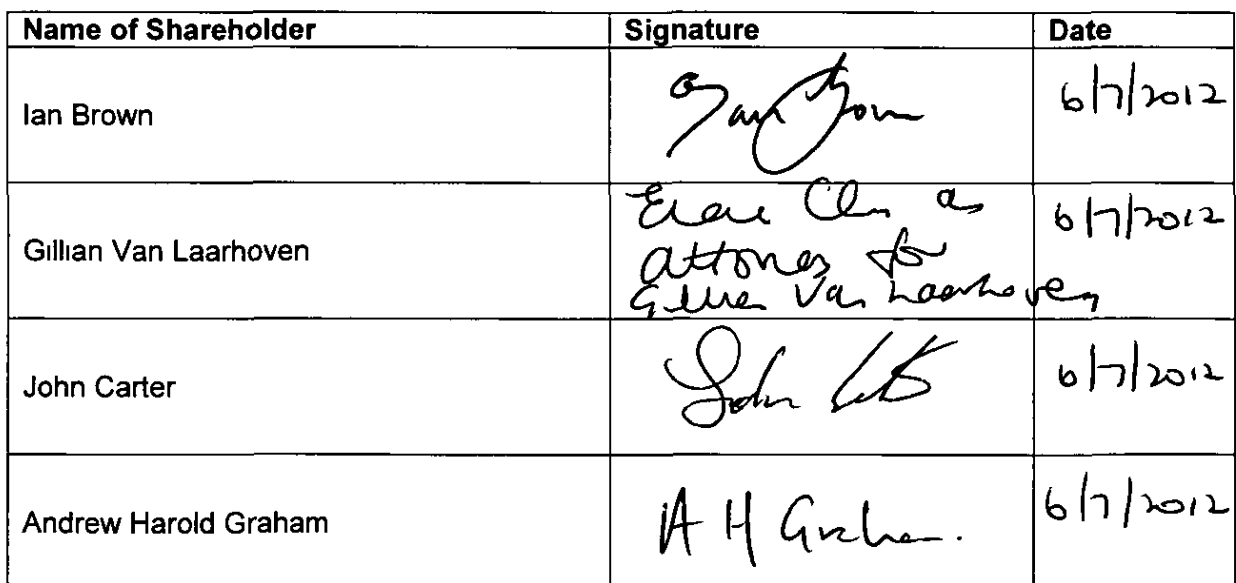 Name of Shareholder Signature Date
Ian Brown Ian Brown 6/7/2012
as 6/7/2012
Gillian Van Laarhoven attorney for
Gillian Van Laarhoven
John Carter John 6/7/2012
Andrew Harold Graham A H Graham. 6/7/2012